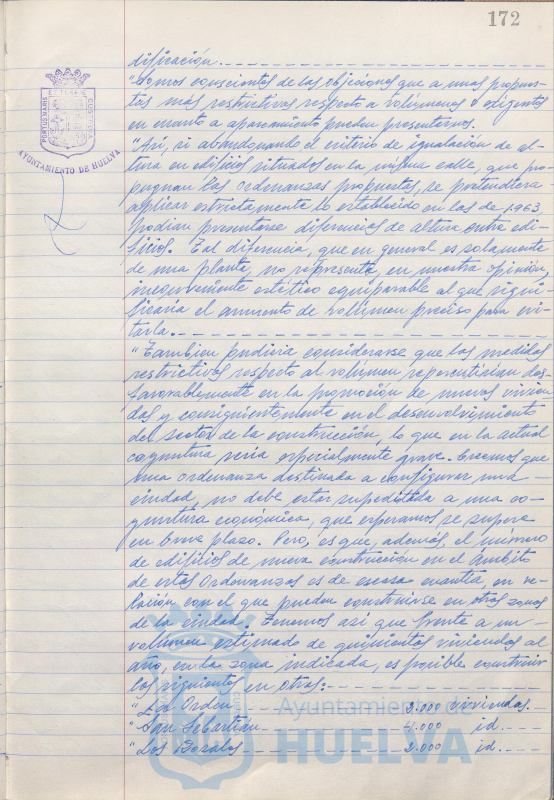 172
dificación.
"Somos conscientes de las objeciones que a unas propues-
tas más restrictivas respecto a volumenes o exigentes
en cuanto a aparcamiento pueden presentarnos.
"Así, si abandonando el criterio de igualación de al-
tura en edificios situados en la misma calle, que pro-
pugnan las ordenanzas propuestas, se pretendiera
aplicar estrictamente lo establecido en las de 1.963,
podian presentarse diferencias de altura entre edi-
ficios. Tal diferencia, que en general es solamente
de una planta, no representa, en nuestra opinión,
inconveniente estético equiparable al que signi-
ficaria el aumento de volumen preciso para evi-
tarla.
"Tambien pudiera considerarse que las medidas
restrictivas respecto al volumen repercutirian des-
favorablemente en la promoción de nuevas vivien-
das y consiguientemente en el desenvolvimiento
del sector de la construcción, lo que en la actual
coyuntura seria especialmente grave. Creemos que
una ordenanza destinada a configurar una
ciudad, no debe estar supeditada a una co-
yuntura económica, que esperamos se supere
en breve plazo. Pero, es que, además, el número
de edificios de nueva construcción en el ámbito
de estas Ordenanzas es de escasa cuantia, en re-
lación, con el que pueden construirse en otras zonas
de la ciudad. Tenemos asi que frente a un
volumen estimado de quinientas viviendas al
año, en la zona indicada, es posible construir
las siguientes en otras:
"La Orden 3.000 viviendas.
"San Sebastian 4.000 id.
"Los Rosales 2.000 id.
PORTUS MARIS ET TERRE CUSTODIA
AYUNTAMIENTO DE HUELVA
Ayuntamiento de
HUELVA